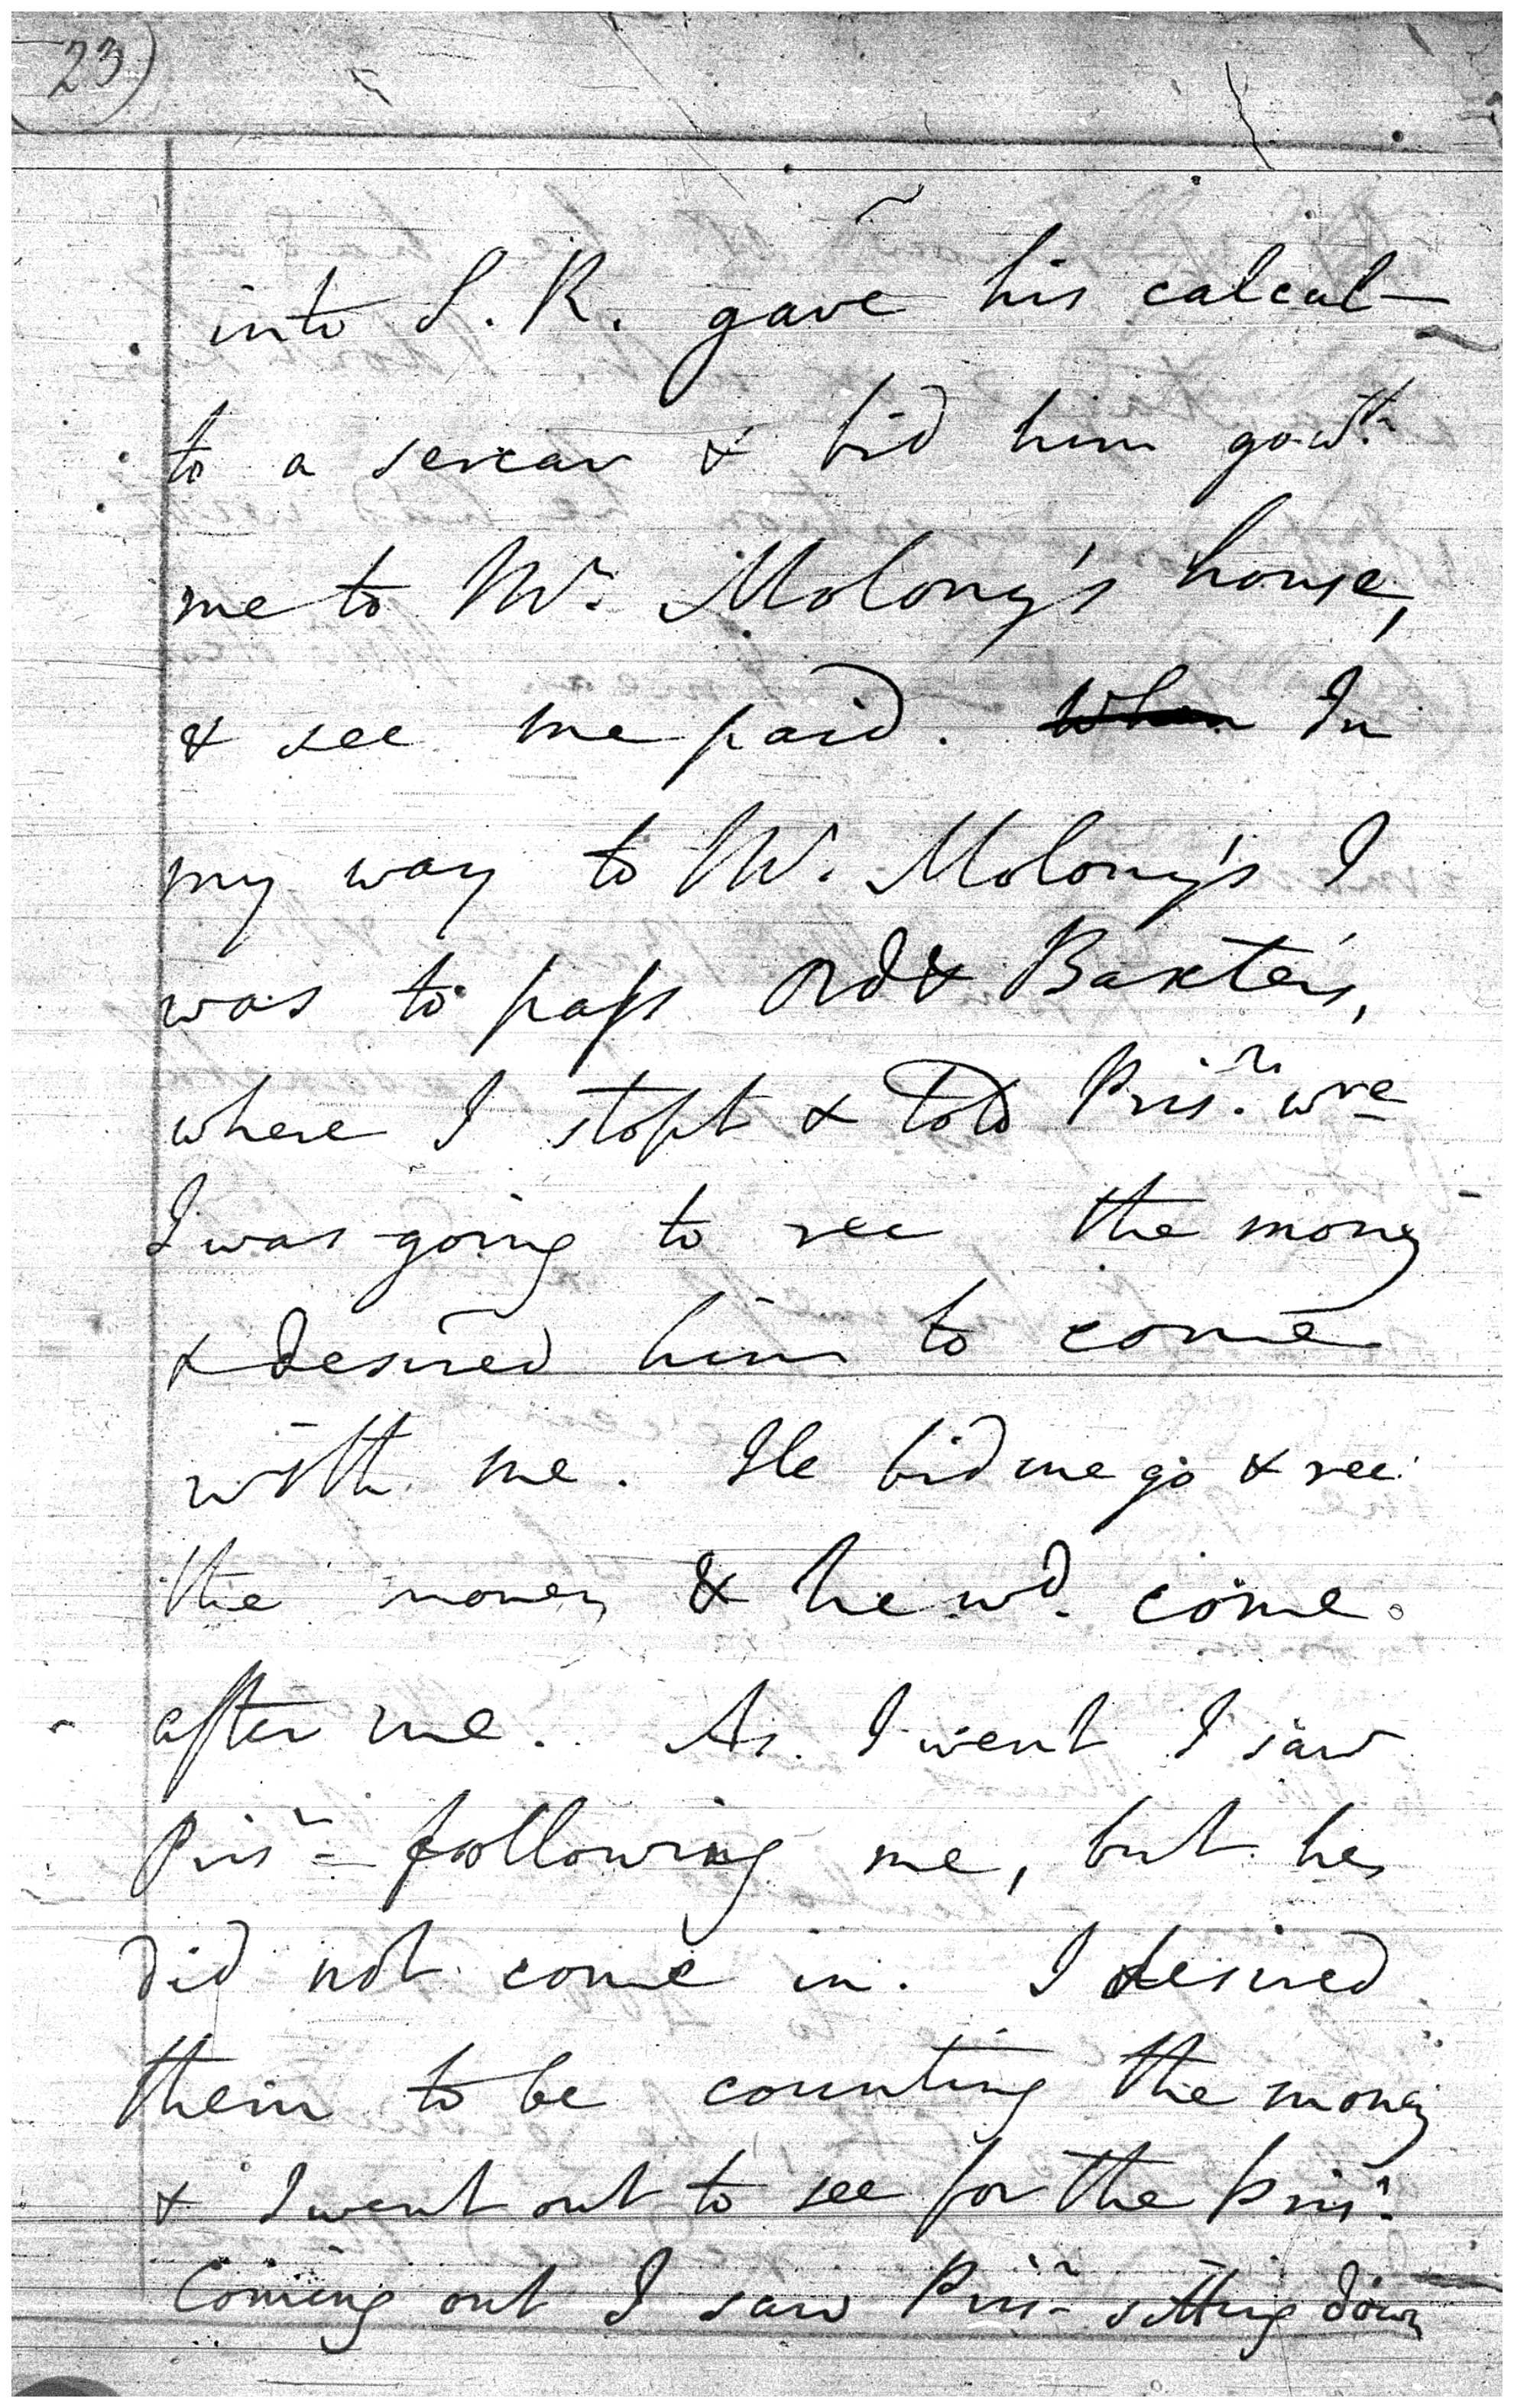 23)
into S. R. gave his calcul-
to a sercar & bid him go wth.
me to Mr. Molony's house,
& see me paid. When In
my way to Mr. Molony's I
was to pass Ord & Baxter's,
where I stopt & told Prisr. wre
I was going to rec the money
& desired him to come
with me. He bid me go & rec.
the money & he wd. come
after me. As I went I saw
Prisr. following me, but he
did not come in. I desired
them to be counting the money
& I went out to see for the Prisr.
Coming out I saw Prisr. sitting down